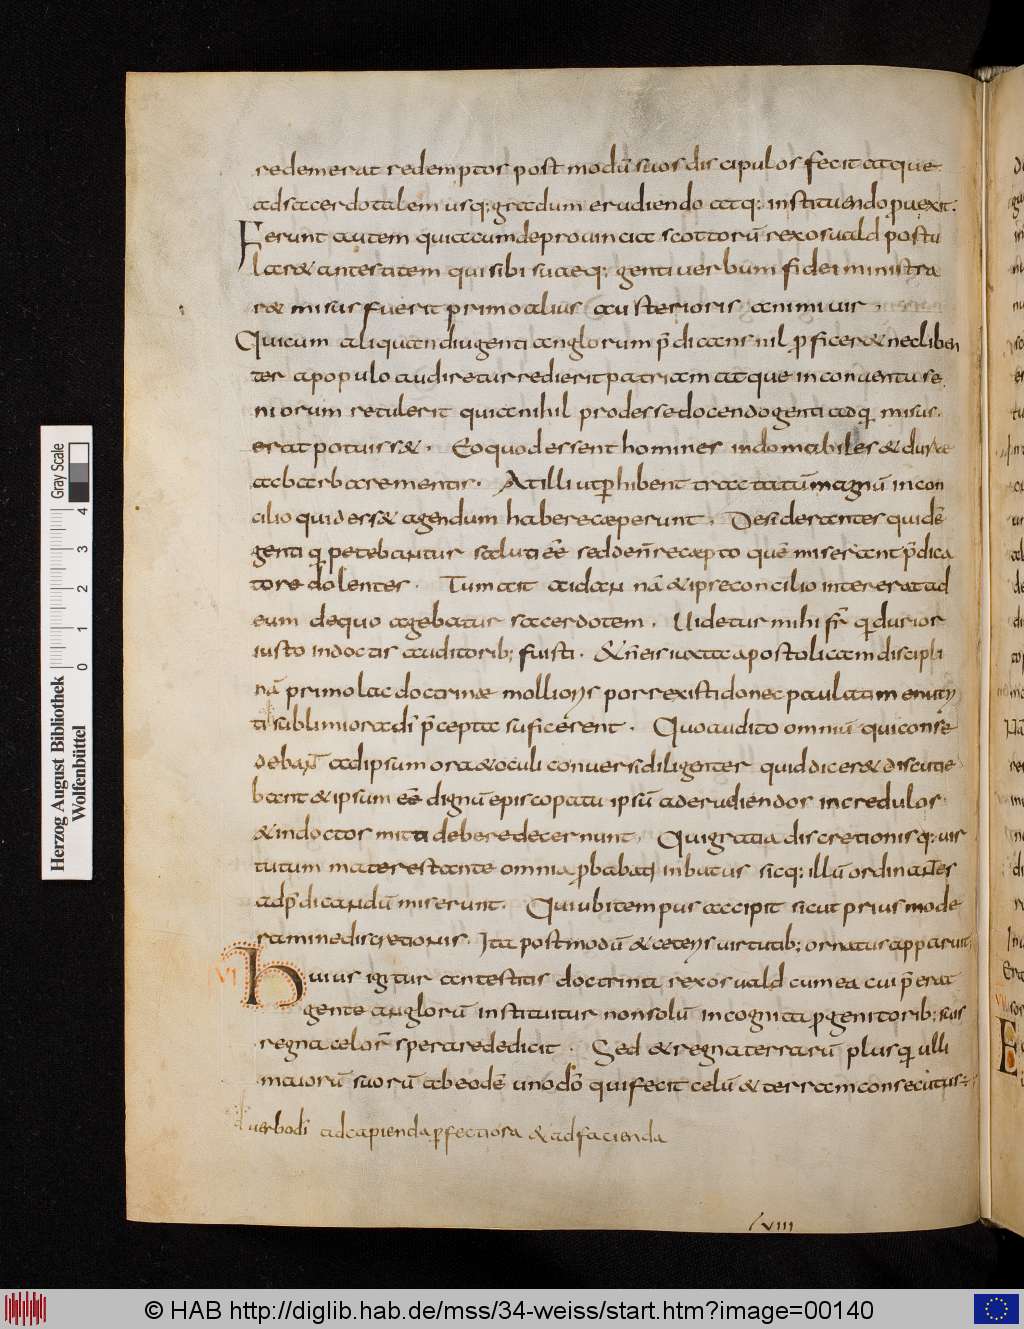 redemerat redemptos post modū suos discipulos fecit atque
ad sacerdotalem usq; gradum erudiendo atq; instituendo puexit.
Ferunt autem quia cum de prouincia scottorū rex osuald postu
laret antestitem qui sibi suaeq; genti uerbum fidei ministra
ret misus fuerit primo alius austerioris animi uir .
Qui cum aliquandiu genti anglorum p̄dicans nil pficeret nec liben
ter a populo audiretur redierit patriam atque in conuentu se
niorum retulerit quia nihil prodesse docendo genti ad q̄ misus .
erat potuisset . Eo quod essent homines indomabiles & durae
ac barbare mentis . At illi ut phibent tractatū magnū in con
cilio quid esset agendum habere caeperunt . Desiderantes quidē
genti q̄ petebantur saluti eē sed de n̄ recaepto quē miserant p̄dica
tore dolentes . Tum ait aidan nā & ipse concilio intererat ad
eum de quo agebatur sacerdotem . Uidetur mihi fr̄ q̄ durior
iusto indoctis auditorib; fuisti . & n̄ eis iuxta apostolicam discipli
nā primo lac doctrinae mollioris porrexisti donec paulatim enutri
ti sublimiora di p̄cepta suficerent . Quo audito omniū qui conse
debant ad ipsum ora & oculi conuersi diligenter quid diceret discutie
bant & ipsum eē dignū episcopatu ipsū ad erudiendos incredulos .
& indoctos mitti debere decernunt . Qui gratia discretionis q; uir
tutum mater est ante omnia pbabati inbutus sicq; illū ordinantes
ad p̄dicandū miserunt . Qui ubi tempus accipit sicut prius mode
ramine discretionis . Ita postmodū & ceteris uirtutib; ornatus apparuit
VI Huius igitur antestitis doctrina rex osuald cum ea cui p̄erat
gente anglorū instituitur non solū incognita pgenitorib; suis
regna celor̄ sperare dedicit . Sed & regna terrarū plus q̄ ulli
maiorū suorū ab eodē uno dō qui fecit celū & terram consecutus
uerbo di ad capienda pfectiora & ad facienda
LVIII
Herzog August Bibliothek
Wolfenbüttel
0 1 2 3 4
Gray Scale
© HAB http://diglib.hab.de/mss/34-weiss/start.htm?image=00140